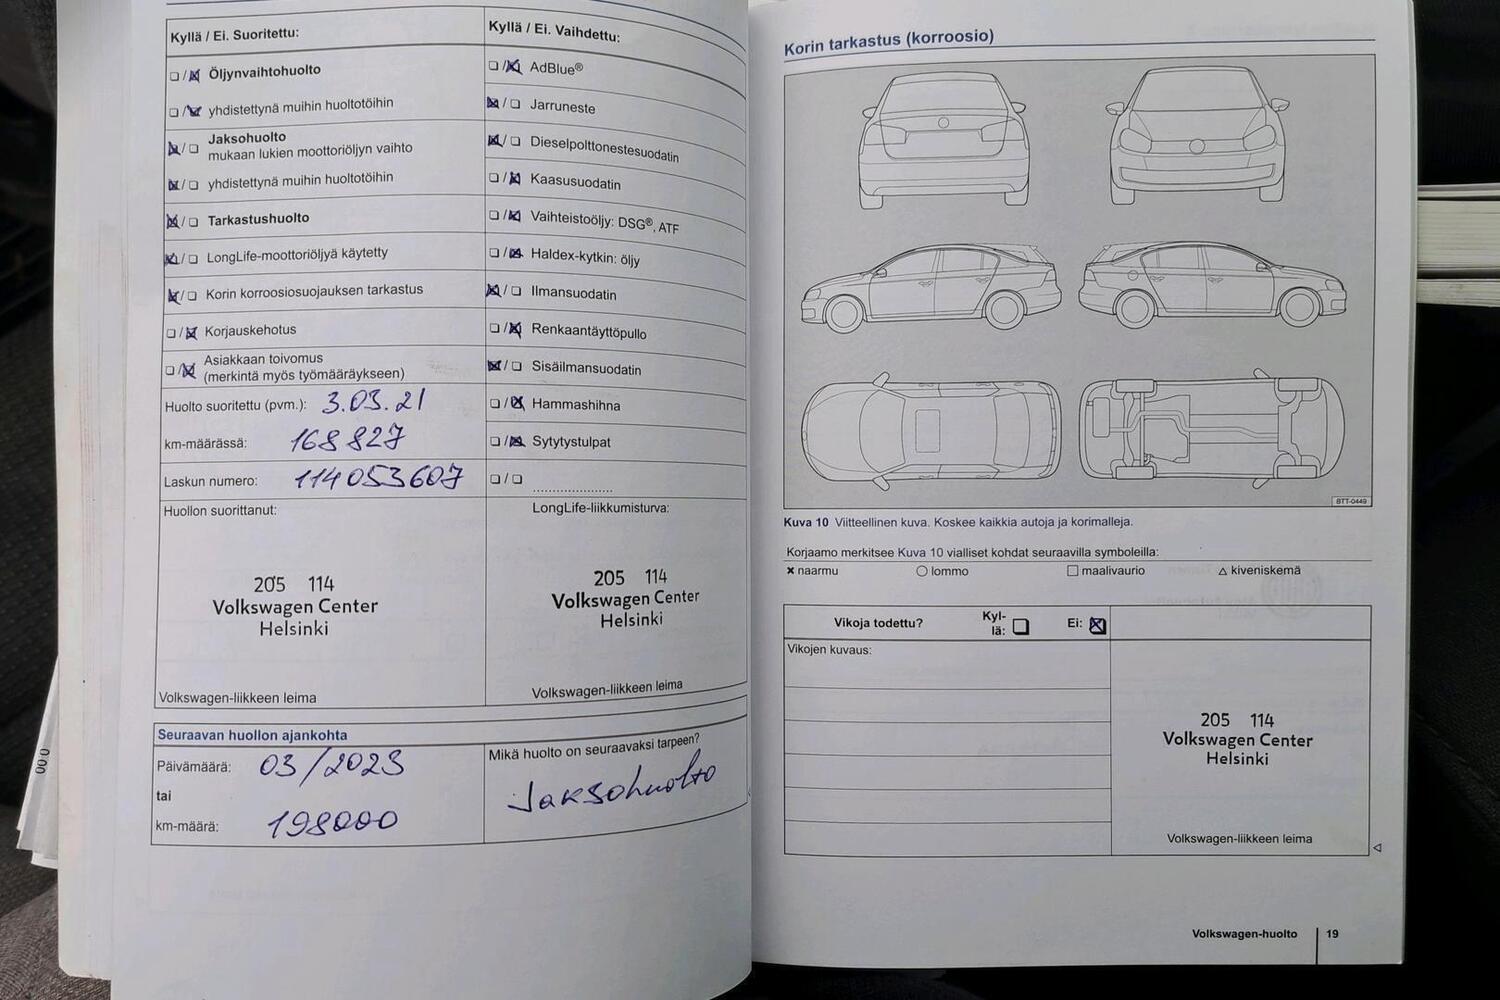 Kyllä / Ei. Suoritettu:
☐ / ☒ Öljynvaihtohuolto
☐ / ☒ yhdistettynä muihin huoltotöihin
☒ / ☐ Jaksohuolto
mukaan lukien moottoriöljyn vaihto
☒ / ☐ yhdistettynä muihin huoltotöihin
☒ / ☐ Tarkastushuolto
☒ / ☐ LongLife-moottoriöljyä käytetty
☒ / ☐ Korin korroosiosuojauksen tarkastus
☐ / ☒ Korjauskehotus
☐ / ☒ Asiakkaan toivomus
(merkintä myös työmääräykseen)
Huolto suoritettu (pvm.): 3.03.21
km-määrässä: 168 827
Laskun numero: 114053607
Huollon suorittanut:
205 114
Volkswagen Center
Helsinki
Volkswagen-liikkeen leima
Kyllä / Ei. Vaihdettu:
☐ / ☒ AdBlue®
☒ / ☐ Jarruneste
☒ / ☐ Dieselpolttonestesuodatin
☐ / ☒ Kaasusuodatin
☐ / ☒ Vaihteistoöljy: DSG®, ATF
☐ / ☒ Haldex-kytkin: öljy
☒ / ☐ Ilmansuodatin
☐ / ☒ Renkaantäyttöpullo
☒ / ☐ Sisäilmansuodatin
☐ / ☒ Hammashihna
☐ / ☒ Sytytystulpat
☐ / ☐ ....................
LongLife-liikkumisturva:
205 114
Volkswagen Center
Helsinki
Volkswagen-liikkeen leima
Seuraavan huollon ajankohta
Päivämäärä: 03/2023
tai
km-määrä: 198000
Mikä huolto on seuraavaksi tarpeen?
Jaksohuolto
00.0
Korin tarkastus (korroosio)
BTT-0449
Kuva 10 Viitteellinen kuva. Koskee kaikkia autoja ja korimalleja.
Korjaamo merkitsee Kuva 10 vialliset kohdat seuraavilla symboleilla:
✖ naarmu ○ lommo □ maalivaurio △ kiveniskemä
Vikoja todettu? Kyl-
lä: ☐ Ei: ☒
Vikojen kuvaus:
205 114
Volkswagen Center
Helsinki
Volkswagen-liikkeen leima
Volkswagen-huolto 19